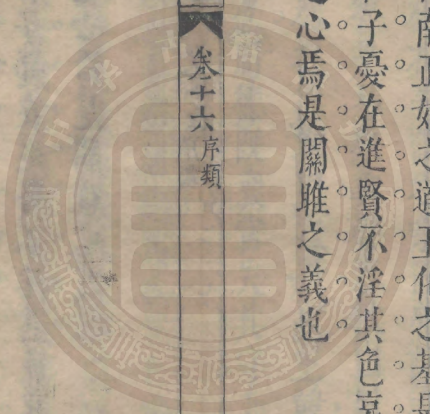 南正始之道王化之基是
子憂在進賢不淫其色哀
心焉是關雎之義也
卷十六 序類